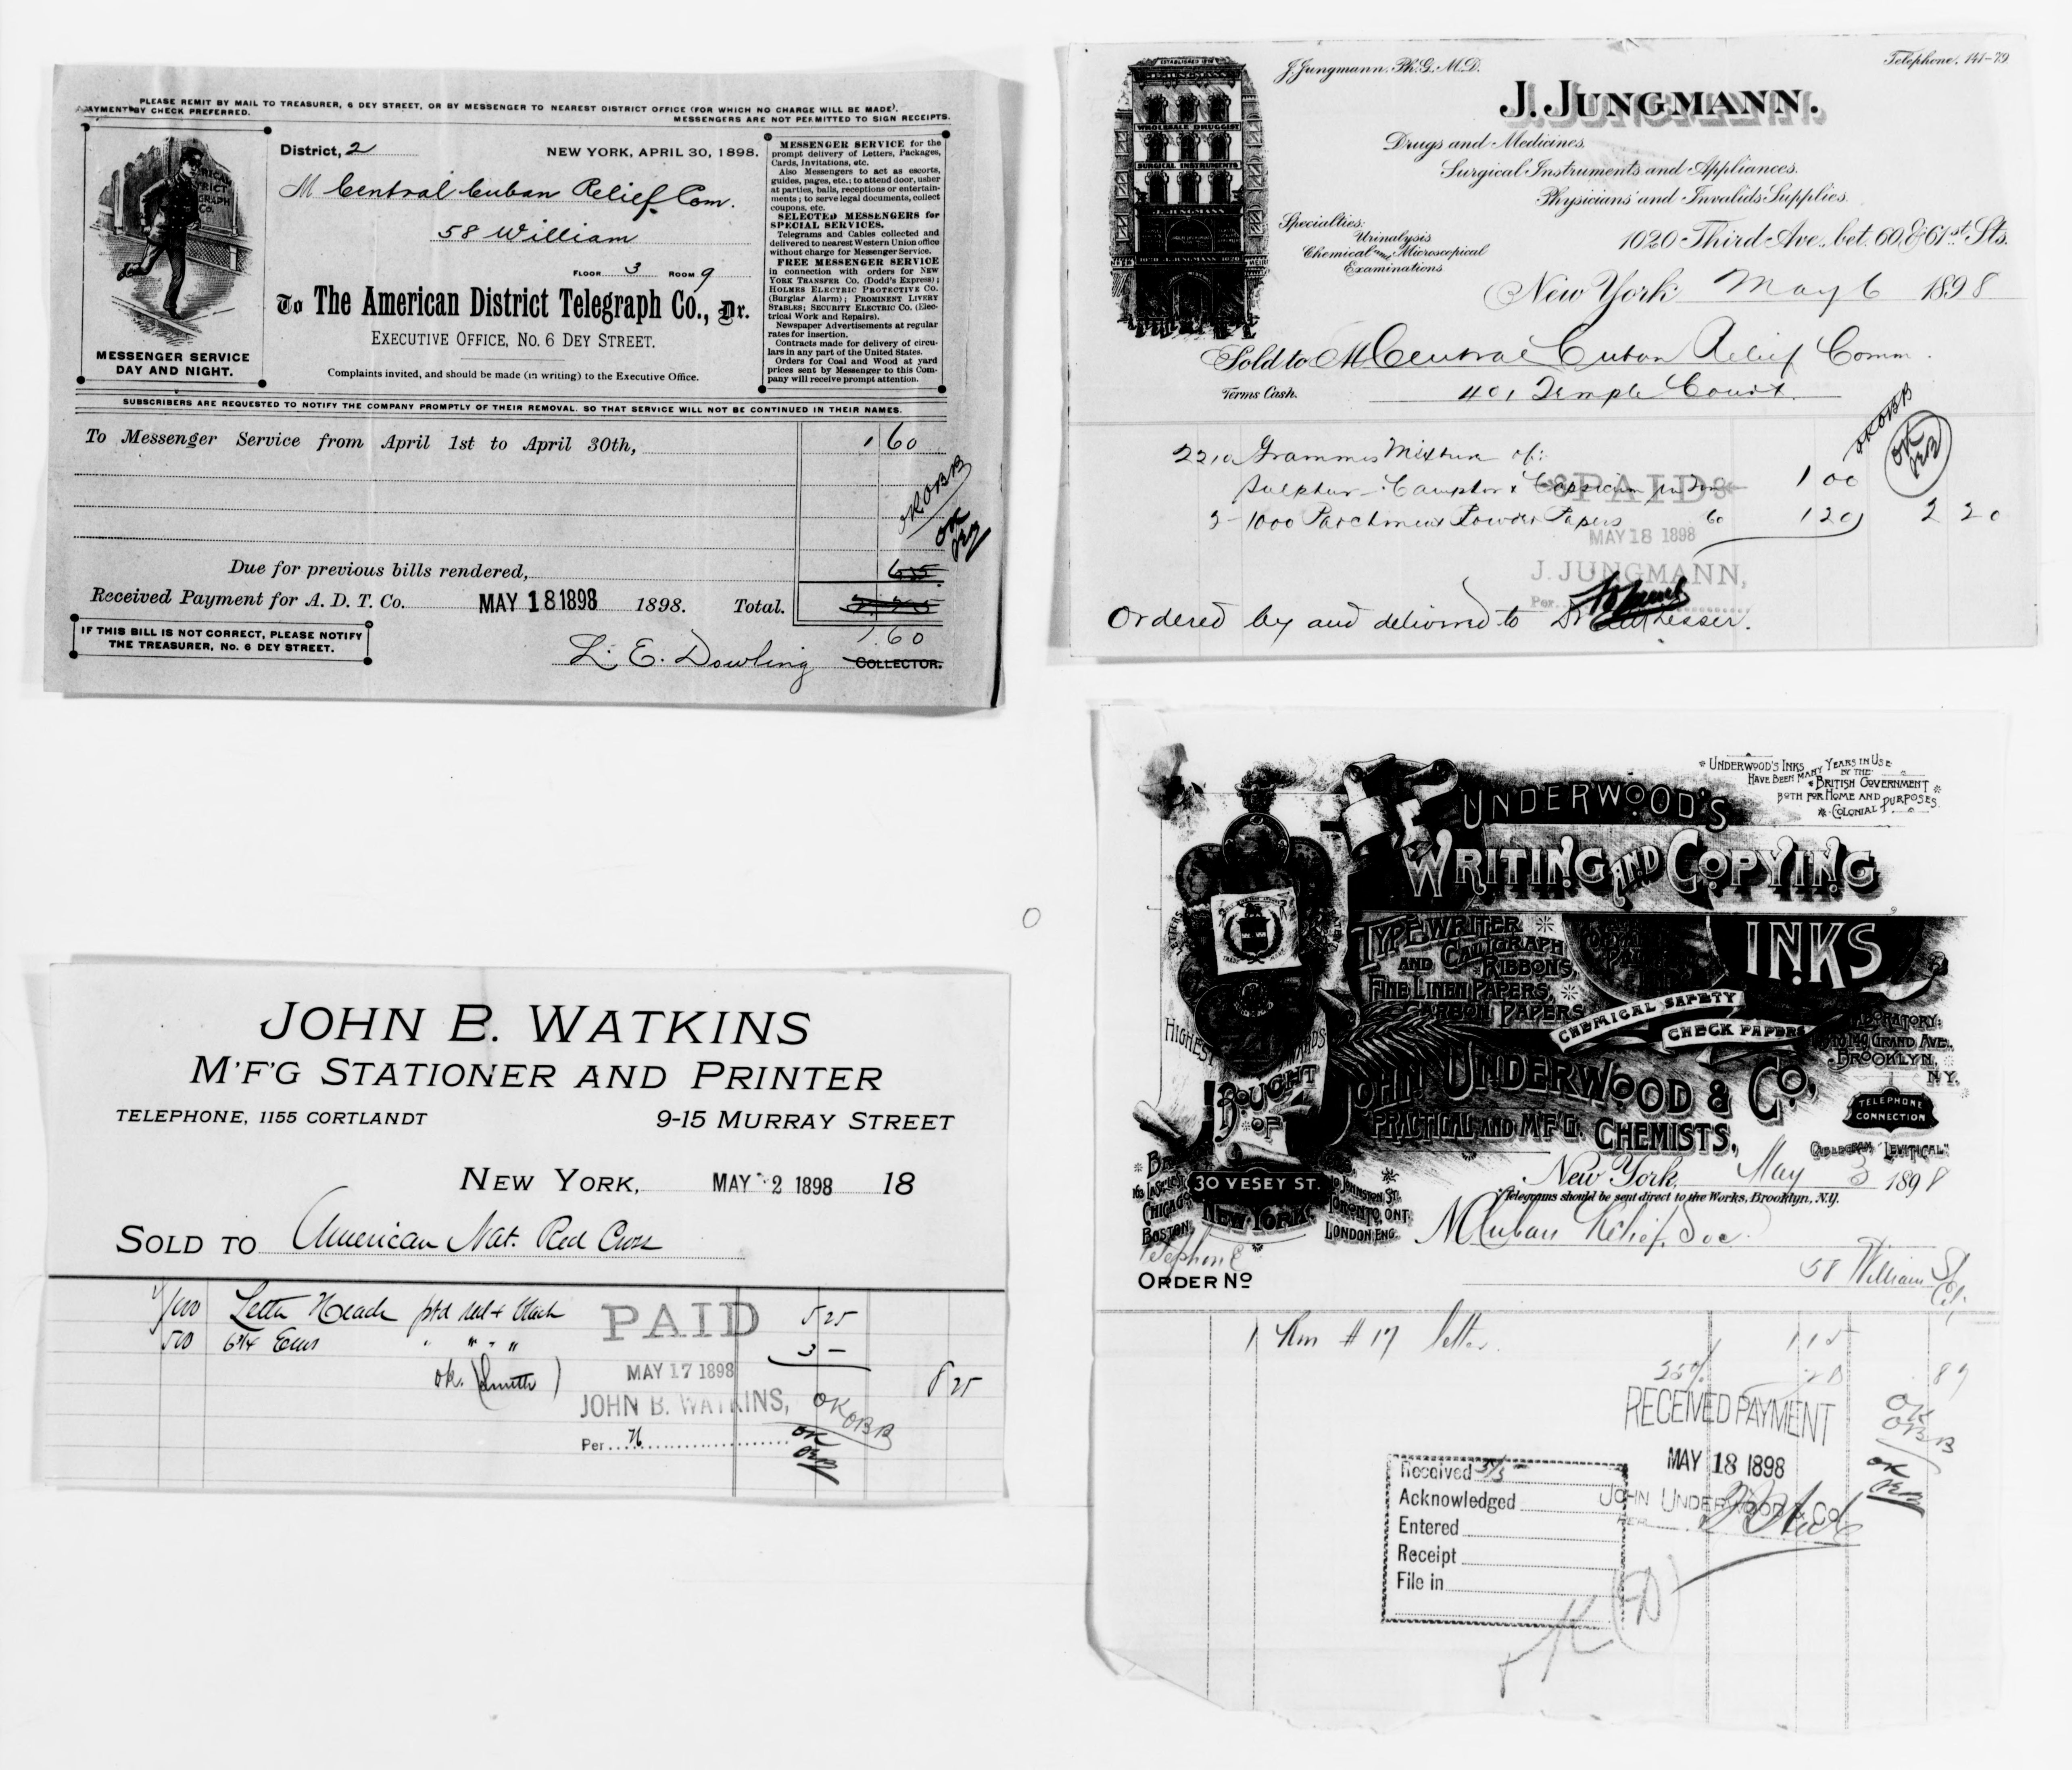 PLEASE REMIT BY MAIL TO TREASURER, 6 DEY STREET, OR BY MESSENGER TO NEAREST DISTRICT OFFICE (FOR WHICH NO CHARGE WILL BE MADE).
PAYMENT BY CHECK PREFERRED.
MESSENGERS ARE NOT PERMITTED TO SIGN RECEIPTS.
MESSENGER SERVICE
DAY AND NIGHT.
District, 2
NEW YORK, APRIL 30, 1898.
M Central Cuban Relief Com.
58 William
FLOOR 3 ROOM 9
To The American District Telegraph Co., Dr.
EXECUTIVE OFFICE, No. 6 DEY STREET.
Complaints invited, and should be made (in writing) to the Executive Office.
MESSENGER SERVICE for the
prompt delivery of Letters, Packages,
Cards, Invitations, etc.
Also Messengers to act as escorts,
guides, pages, etc.; to attend door, usher
at parties, balls, receptions or entertain-
ments; to serve legal documents, collect
coupons, etc.
SELECTED MESSENGERS for
SPECIAL SERVICES.
Telegrams and Cables collected and
delivered to nearest Western Union office
without charge for Messenger Service.
FREE MESSENGER SERVICE
in connection with orders for NEW
YORK TRANSFER CO. (Dodd's Express);
HOLMES ELECTRIC PROTECTIVE CO.
(Burglar Alarm); PROMINENT LIVERY
STABLES; SECURITY ELECTRIC CO. (Elec-
trical Work and Repairs).
Newspaper Advertisements at regular
rates for insertion.
Contracts made for delivery of circu-
lars in any part of the United States.
Orders for Coal and Wood at yard
prices sent by Messenger to this Com-
pany will receive prompt attention.
SUBSCRIBERS ARE REQUESTED TO NOTIFY THE COMPANY PROMPTLY OF THEIR REMOVAL, SO THAT SERVICE WILL NOT BE CONTINUED IN THEIR NAMES.
To Messenger Service from April 1st to April 30th, 1 60
OK OBB
OK
Due for previous bills rendered,
Received Payment for A. D. T. Co. MAY 18 1898 1898. Total.
1.60
IF THIS BILL IS NOT CORRECT, PLEASE NOTIFY
THE TREASURER, No. 6 DEY STREET.
L. E. Dowling COLLECTOR.
ESTABLISHED
J. JUNGMANN
WHOLESALE DRUGGIST
SURGICAL INSTRUMENTS
J. JUNGMANN
1020 J. JUNGMANN 1020
J. Jungmann. Ph.G. M.D.
Telephone, 141-79
J. JUNGMANN.
Drugs and Medicines,
Surgical Instruments and Appliances.
Physicians' and Invalids Supplies.
Specialties:
Urinalysis
Chemical and Microscopical
Examinations
1020 Third Ave. bet. 60 & 61st Sts.
New York May 6 1898
Sold to M Central Cuban Relief Comm.
Terms Cash. 401 Temple Court.
OK OBB
OK
2210 Grammes Mixture of:
Sulphur - Camphor & Capsicum 1 00
2 - 1000 Parchment Powder Papers 60 1 20 2 20
PAID
MAY 18 1898
J. JUNGMANN,
Per
Ordered by and delivered to Dr Lesser.
JOHN B. WATKINS
M'F'G STATIONER AND PRINTER
TELEPHONE, 1155 CORTLANDT 9-15 MURRAY STREET
NEW YORK, MAY 2 1898 18
SOLD TO American Nat. Red Cross
1/1000 Letter Heads ptd red & black 5 25
500 6 3/4 Envs " " " 3 -
ok. (Smith) 8 25
PAID
MAY 17 1898
JOHN B. WATKINS,
Per H
OK OBB
OK
UNDERWOOD'S INKS
HAVE BEEN MANY YEARS IN USE
BY THE
BRITISH GOVERNMENT
BOTH FOR HOME AND
COLONIAL PURPOSES.
UNDERWOOD'S
WRITING AND COPYING
INKS
TYPEWRITER
AND CALIGRAPH
RIBBONS,
FINE LINEN PAPERS,
CARBON PAPERS
CHEMICAL SAFETY
CHECK PAPERS
LABORATORY:
GRAND AVE.
BROOKLYN,
N.Y.
HIGHEST AWARDS
BOUGHT
OF
JOHN UNDERWOOD & CO.
PRACTICAL AND M'F'G. CHEMISTS,
TELEPHONE
CONNECTION
CABLEGRAM "LEVITICAL"
30 VESEY ST.
NEW YORK
CHICAGO
BOSTON
JOHNSTON ST.
TORONTO, ONT.
LONDON ENG.
New York, May 3 1898
Telegrams should be sent direct to the Works, Brooklyn, N.Y.
M Cuban Relief Soc.
Telephone
ORDER No
58 William St
City
1 Rm # 17 letter. 1 15
25% 28 87
RECEIVED PAYMENT
MAY 18 1898
JOHN UNDERWOOD & CO.
PER
OK
OBB
OK
Received 5/3
Acknowledged
Entered
Receipt
File in